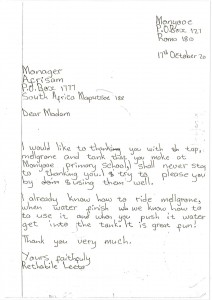 Manyane
P.O.Box 127
Roma 180
17th October 20
Manager
Africam
P.O. Box 1777
South Africa Maputsoe 180
Dear Madam
I would like to thanking you with tap,
mellgrane and tank that you make at
Manyane primary school, shall never stop
to thanking you. I try to please you
by using them well.
I already know how to ride mellgrane,
when water finish we know how to
to use it and when you push it water
get into the tank. It is great fun!
Thank you very much.
Yours faithfully
Rethabile Leeto